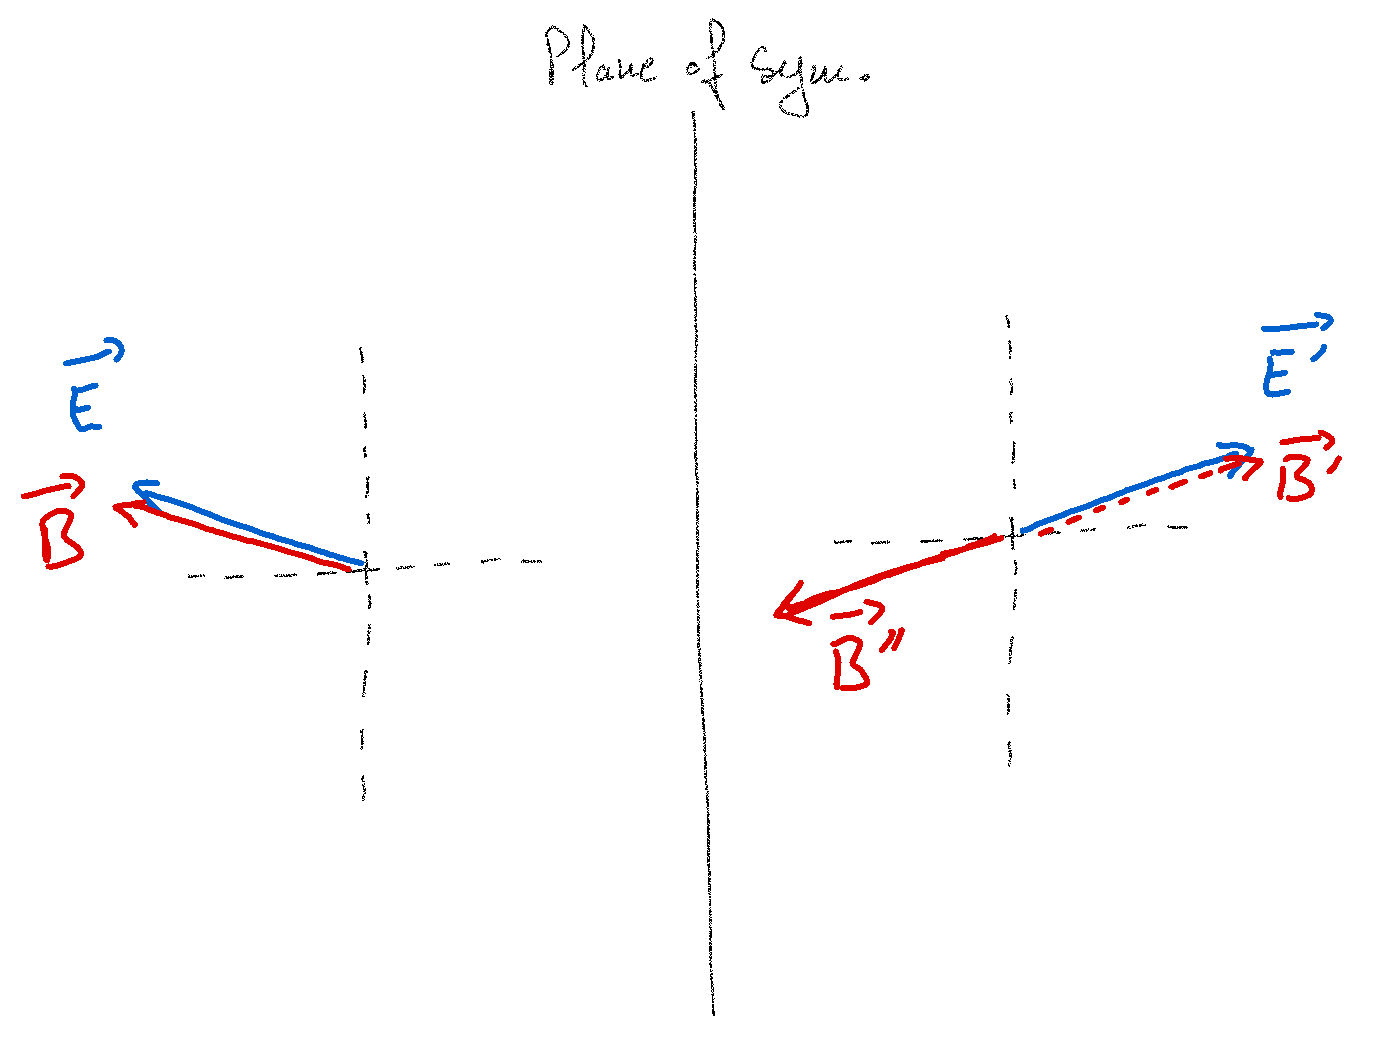 Plane of sym.
E
B
E'
B'
B"